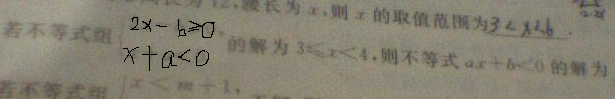 腰长为 x,则 x 的取值范围为3<x<6.
若不等式组 2x-b≥0 x+a<0 的解为 3≤x<4,则不等式 ax+b<0 的解为
若不等式组 x<m+1,